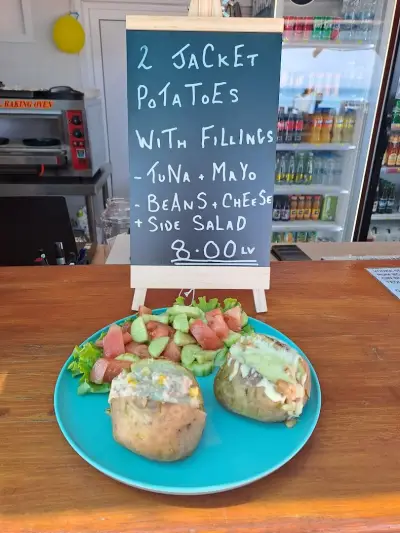 BAKING OVEN
2 JACKET
POTATOES
WITH FILLINGS
- TUNA + MAYO
- BEANS + CHEESE
+ SIDE SALAD
8.00 LV